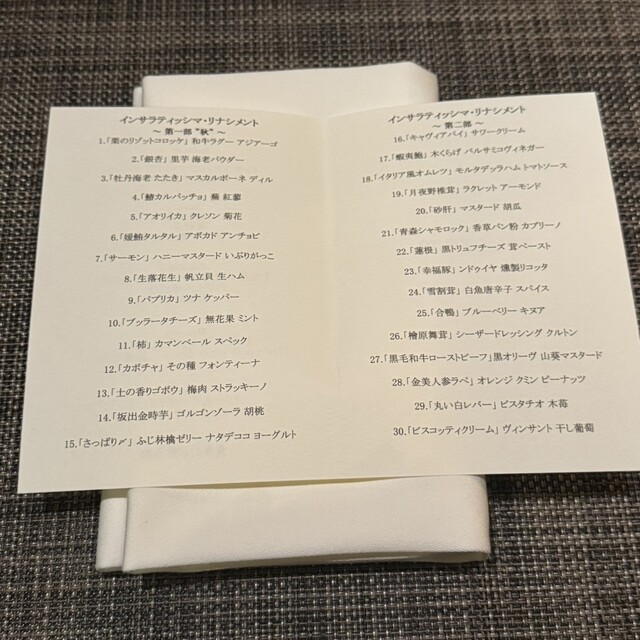 インサラティッシマ・リナシメント
～ 第一部 "秋" ～
1.「栗のリゾットコロッケ」 和牛ラグー アジアーゴ
2.「銀杏」 里芋 海老パウダー
3.「牡丹海老 たたき」 マスカルポーネ ディル
4.「鰆カルパッチョ」 蕪 紅蓼
5.「アオリイカ」 クレソン 菊花
6.「媛鮪タルタル」 アボカド アンチョビ
7.「サーモン」 ハニーマスタード いぶりがっこ
8.「生落花生」 帆立貝 生ハム
9.「パプリカ」 ツナ ケッパー
10.「ブッラータチーズ」 無花果 ミント
11.「柿」 カマンベール スペック
12.「カボチャ」 その種 フォンティーナ
13.「土の香りゴボウ」 梅肉 ストラッキーノ
14.「坂出金時芋」 ゴルゴンゾーラ 胡桃
15.「さっぱり〆」 ふじ林檎ゼリー ナタデココ ヨーグルト
インサラティッシマ・リナシメント
～ 第二部 ～
16.「キャヴィアパイ」 サワークリーム
17.「蝦夷鮑」 木くらげ バルサミコヴィネガー
18.「イタリア風オムレツ」 モルタデッラハム トマトソース
19.「月夜野椎茸」 ラクレット アーモンド
20.「砂肝」 マスタード 胡瓜
21.「青森シャモロック」 香草パン粉 カプリーノ
22.「蓮根」 黒トリュフチーズ 茸ペースト
23.「幸福豚」 ンドゥイヤ 燻製リコッタ
24.「雪割茸」 白魚唐辛子 スパイス
25.「合鴨」 ブルーベリー キヌア
26.「檜原舞茸」 シーザードレッシング クルトン
27.「黒毛和牛ローストビーフ」 黒オリーヴ 山葵マスタード
28.「金美人参ラペ」 オレンジ クミン ピーナッツ
29.「丸い白レバー」 ピスタチオ 木苺
30.「ビスコッティクリーム」 ヴィンサント 干し葡萄